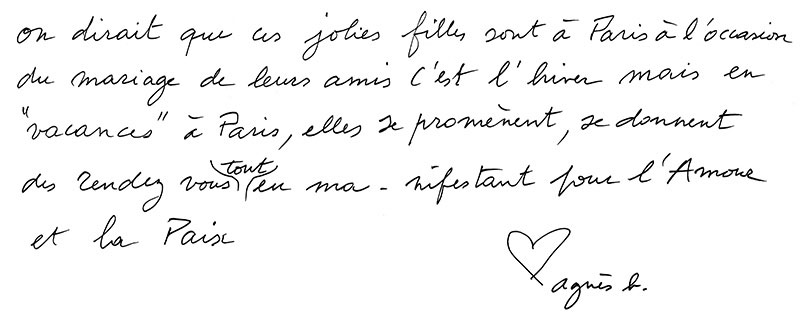 on dirait que ces jolies filles sont à Paris à l'occasion
du mariage de leurs amis C'est l'hiver mais en
"vacances" à Paris, elles se promènent, se donnent
des rendez vous tout en ma - nifestant pour l'Amour
et la Paix
agnès b.